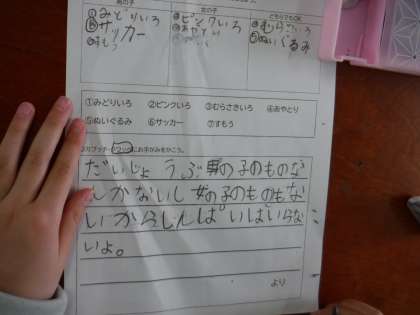 男の子
女の子
どちらでもOK
①みどりいろ
⑥サッカー
⑦すもう
②ピンクいろ
④あやとり
③むらさきいろ
⑤ぬいぐるみ
①みどりいろ ②ピンクいろ ③むらさきいろ ④あやとり
⑤ぬいぐるみ ⑥サッカー ⑦すもう
にお手がみをかこう。
だいじょうぶ男の子のものな
んかないし女の子のものもな
いからしんぱいはいらな
いよ。
より